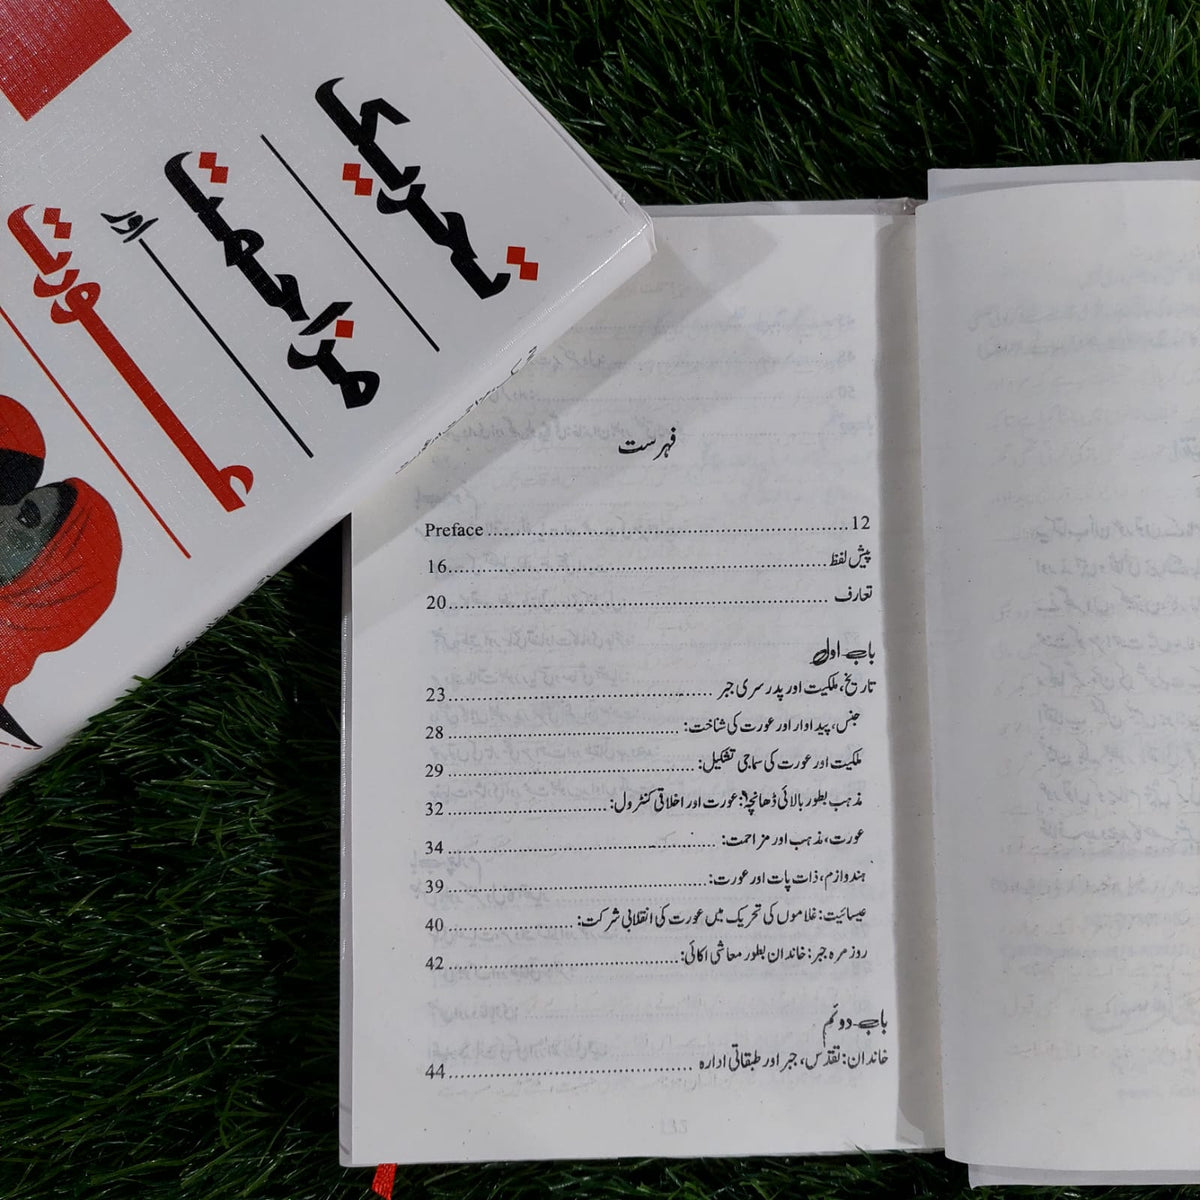 تحریک
مزاحمت
اور
عورت
فہرست
Preface ........ 12
پیش لفظ ........ 16
تعارف ........ 20
باب اول
تاریخ، ملکیت اور پدر سری جبر ........ 23
جنس، پیداوار اور عورت کی شناخت: ........ 28
ملکیت اور عورت کی سماجی تشکیل: ........ 29
مذہب بطور بالائی ڈھانچہ: عورت اور اخلاقی کنٹرول: ........ 32
عورت، مذہب اور مزاحمت: ........ 34
ہندوازم، ذات پات اور عورت: ........ 39
عیسائیت: غلاموں کی تحریک میں عورت کی انقلابی شرکت: ........ 40
روزمرہ جبر: خاندان بطور معاشی اکائی: ........ 42
باب دوئم
خاندان: تقدّس، جبر اور طبقاتی ادارہ ........ 44